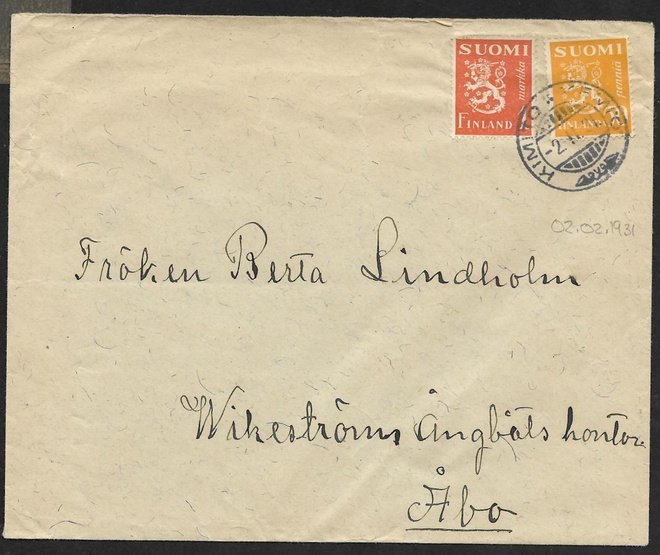 SUOMI SUOMI
markka penniä
FINLAND FINLAND
KIMITO
-2.
02.02.1931
Fröken Berta Lindholm
Wikeströms Ångbåts kontor.
Åbo